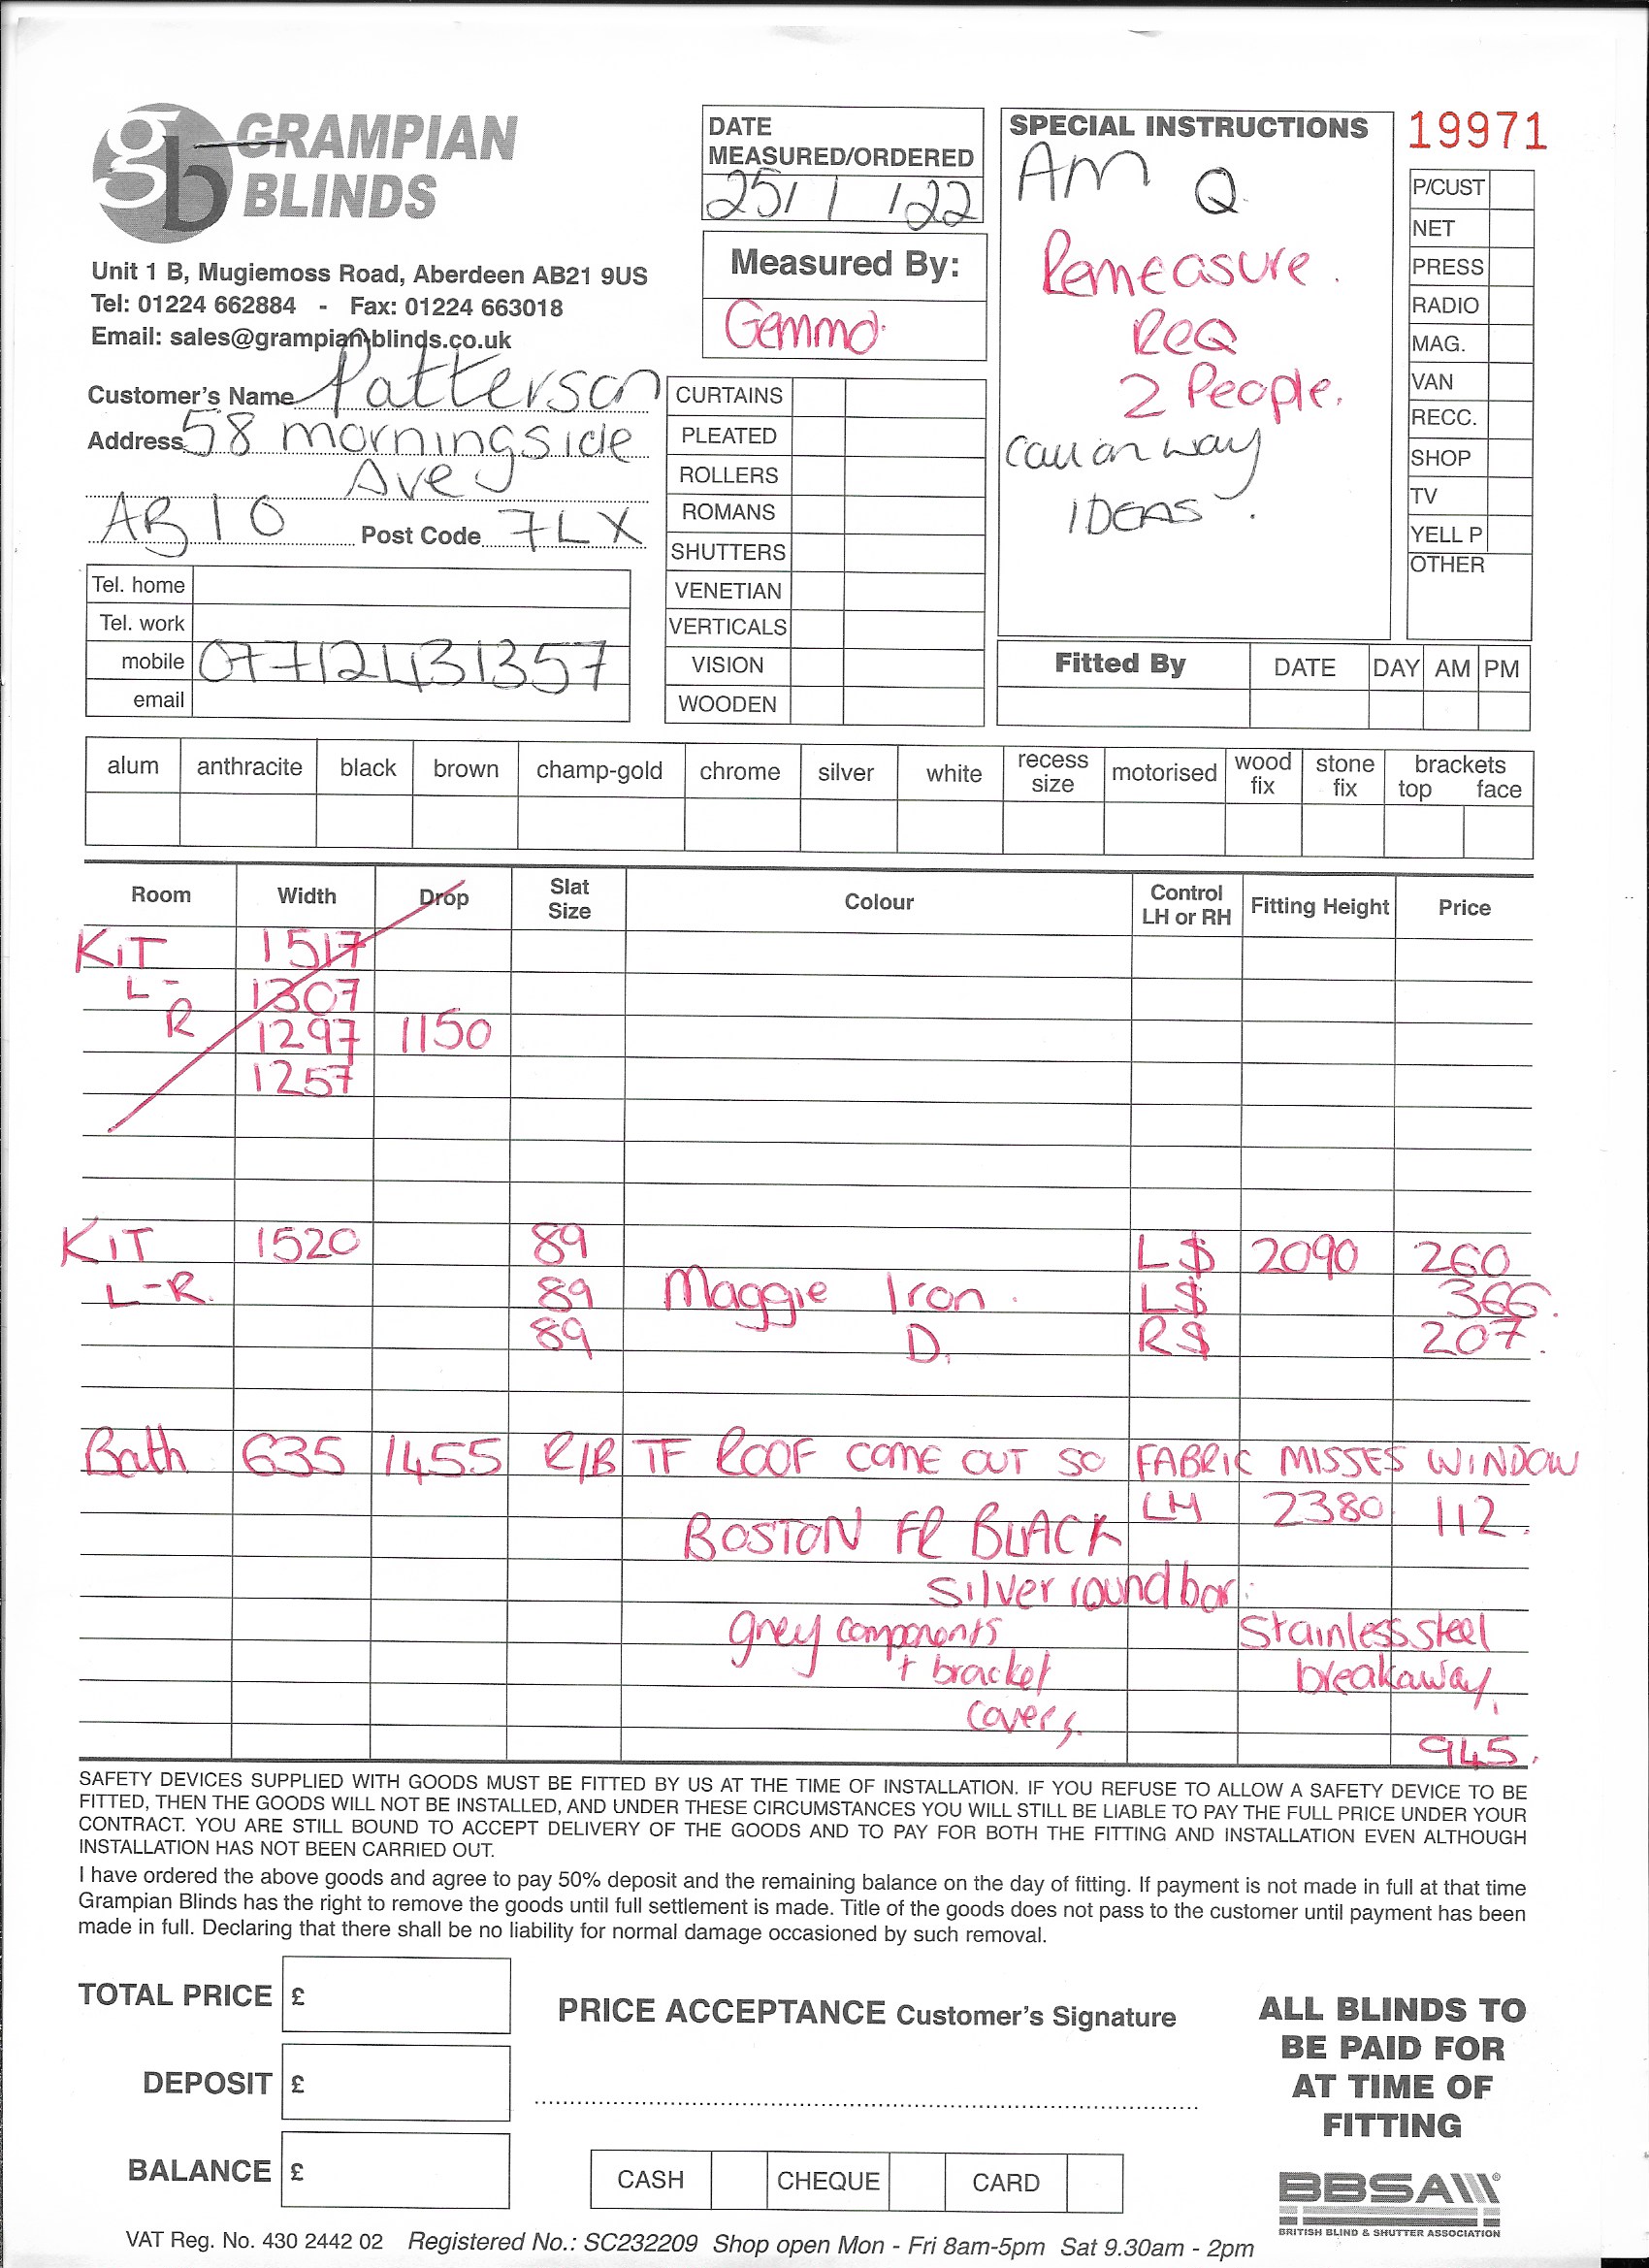 GRAMPIAN
BLINDS
Unit 1 B, Mugiemoss Road, Aberdeen AB21 9US
Tel: 01224 662884 - Fax: 01224 663018
Email: sales@grampianblinds.co.uk
Customer's Name Patterson
Address 58 morningside
Ave
AB10 Post Code 7LX
Tel. home
Tel. work
mobile 07712431357
email
DATE
MEASURED/ORDERED
25/1/22
Measured By:
Gemma
CURTAINS
PLEATED
ROLLERS
ROMANS
SHUTTERS
VENETIAN
VERTICALS
VISION
WOODEN
SPECIAL INSTRUCTIONS
AM Q
Remeasure.
REQ
2 People.
call on way
IDEAS.
19971
P/CUST
NET
PRESS
RADIO
MAG.
VAN
RECC.
SHOP
TV
YELL P
OTHER
Fitted By DATE DAY AM PM
alum anthracite black brown champ-gold chrome silver white recess size motorised wood fix stone fix brackets top face
Room Width Drop Slat Size Colour Control LH or RH Fitting Height Price
KiT 1517
L- 1307
R 1297 1150
1257
KiT 1520 89 L$ 2090 260
L-R. 89 Maggie Iron. L$ 366.
89 D. R$ 207.
Bath 635 1455 R/B TF ROOF COME OUT SO FABRIC MISSES WINDOW
LH 2380 112.
BOSTON FR BLACK
Silver round bar.
grey components Stainless steel
+ bracket breakaway.
covers.
945.
SAFETY DEVICES SUPPLIED WITH GOODS MUST BE FITTED BY US AT THE TIME OF INSTALLATION. IF YOU REFUSE TO ALLOW A SAFETY DEVICE TO BE
FITTED, THEN THE GOODS WILL NOT BE INSTALLED, AND UNDER THESE CIRCUMSTANCES YOU WILL STILL BE LIABLE TO PAY THE FULL PRICE UNDER YOUR
CONTRACT. YOU ARE STILL BOUND TO ACCEPT DELIVERY OF THE GOODS AND TO PAY FOR BOTH THE FITTING AND INSTALLATION EVEN ALTHOUGH
INSTALLATION HAS NOT BEEN CARRIED OUT.
I have ordered the above goods and agree to pay 50% deposit and the remaining balance on the day of fitting. If payment is not made in full at that time
Grampian Blinds has the right to remove the goods until full settlement is made. Title of the goods does not pass to the customer until payment has been
made in full. Declaring that there shall be no liability for normal damage occasioned by such removal.
TOTAL PRICE £
DEPOSIT £
BALANCE £
PRICE ACCEPTANCE Customer's Signature
CASH CHEQUE CARD
ALL BLINDS TO
BE PAID FOR
AT TIME OF
FITTING
BBSA
BRITISH BLIND & SHUTTER ASSOCIATION
VAT Reg. No. 430 2442 02 Registered No.: SC232209 Shop open Mon - Fri 8am-5pm Sat 9.30am - 2pm